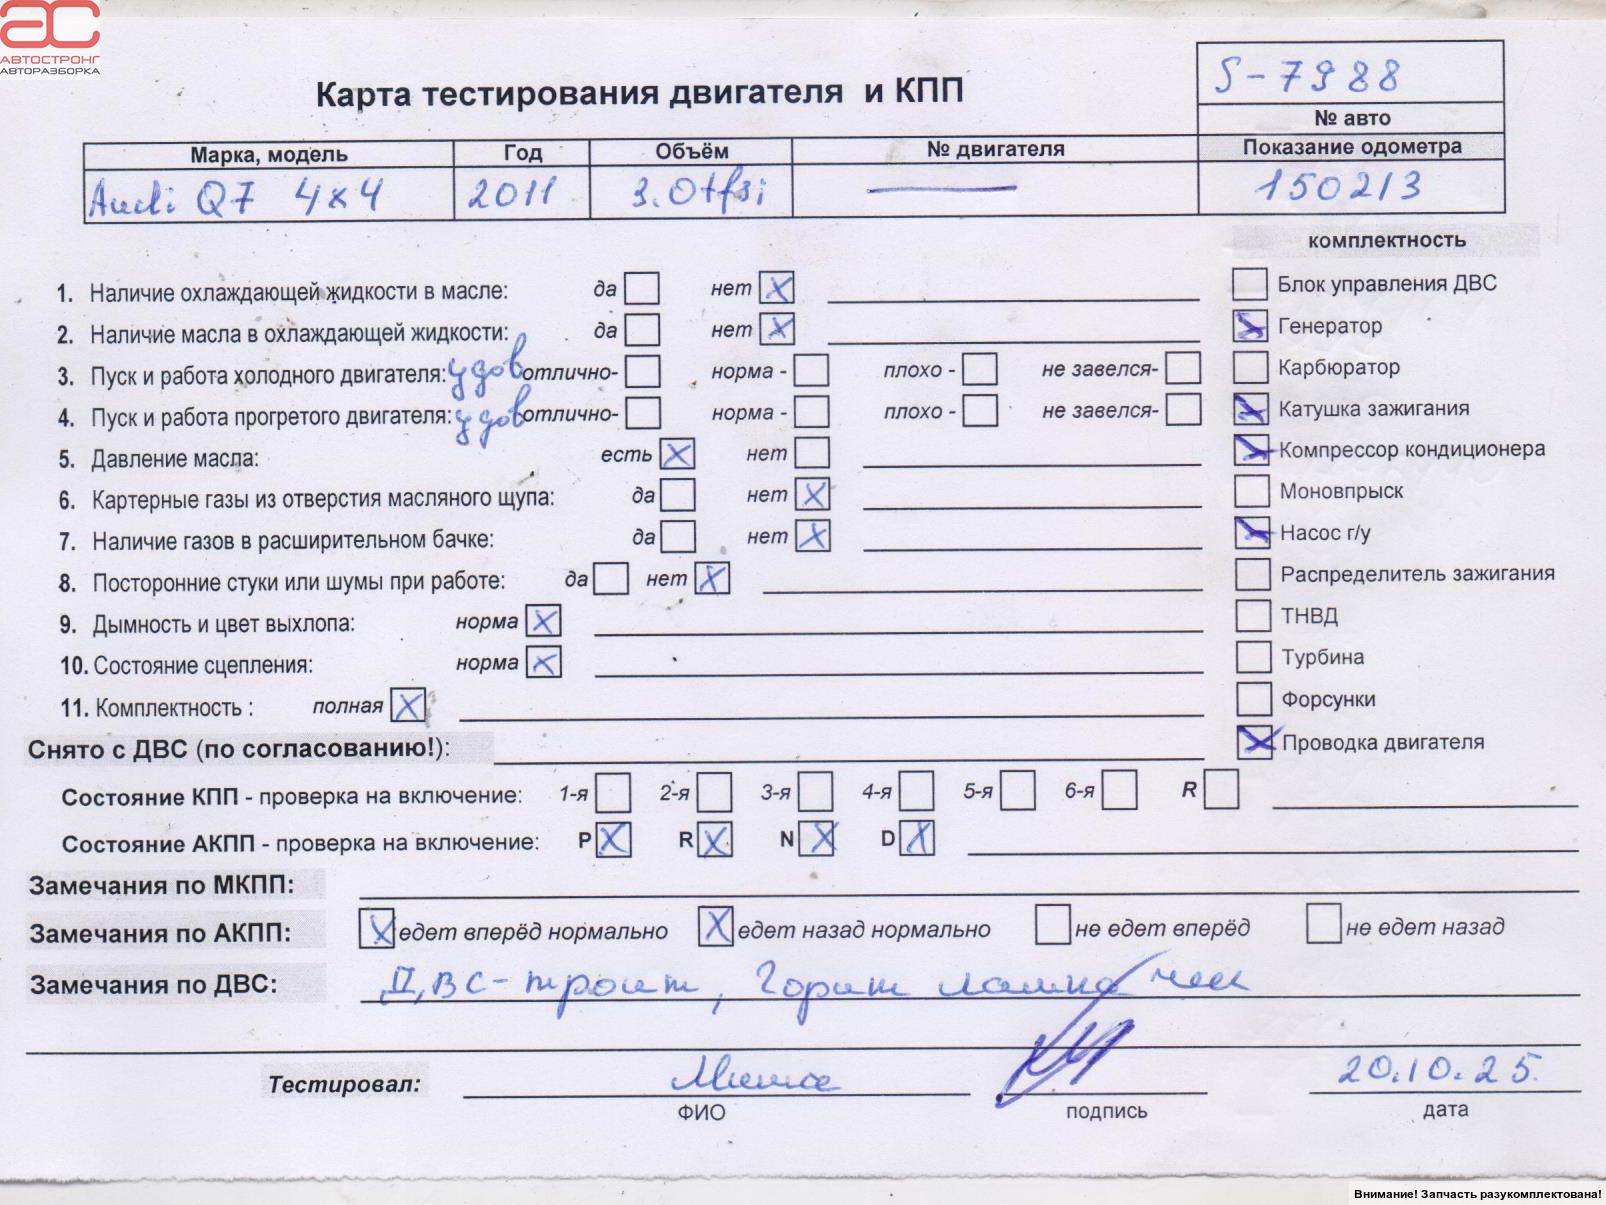 АС
АВТОСТРОНГ
АВТОРАЗБОРКА
Карта тестирования двигателя и КПП
S-7988
№ авто
Марка, модель Год Объём № двигателя Показание одометра
Audi Q7 4x4 2011 3.0tfsi 150213
комплектность
1. Наличие охлаждающей жидкости в масле: да нет X
Блок управления ДВС
2. Наличие масла в охлаждающей жидкости: да нет X
Генератор
3. Пуск и работа холодного двигателя: удов отлично- норма - плохо - не завелся-
Карбюратор
4. Пуск и работа прогретого двигателя: удов отлично- норма - плохо - не завелся-
Катушка зажигания
5. Давление масла: есть X нет
Компрессор кондиционера
6. Картерные газы из отверстия масляного щупа: да нет X
Моновпрыск
7. Наличие газов в расширительном бачке: да нет X
Насос г/у
8. Посторонние стуки или шумы при работе: да нет X
Распределитель зажигания
9. Дымность и цвет выхлопа: норма X
ТНВД
10. Состояние сцепления: норма X
Турбина
11. Комплектность : полная X
Форсунки
Снято с ДВС (по согласованию!):
Проводка двигателя
Состояние КПП - проверка на включение: 1-я 2-я 3-я 4-я 5-я 6-я R
Состояние АКПП - проверка на включение: P X R X N X D X
Замечания по МКПП:
Замечания по АКПП: X едет вперёд нормально X едет назад нормально не едет вперёд не едет назад
Замечания по ДВС: ДВС-троит, Горит лампа чек
Тестировал: Миша 20.10.25.
ФИО подпись дата
Внимание! Запчасть разукомплектована!